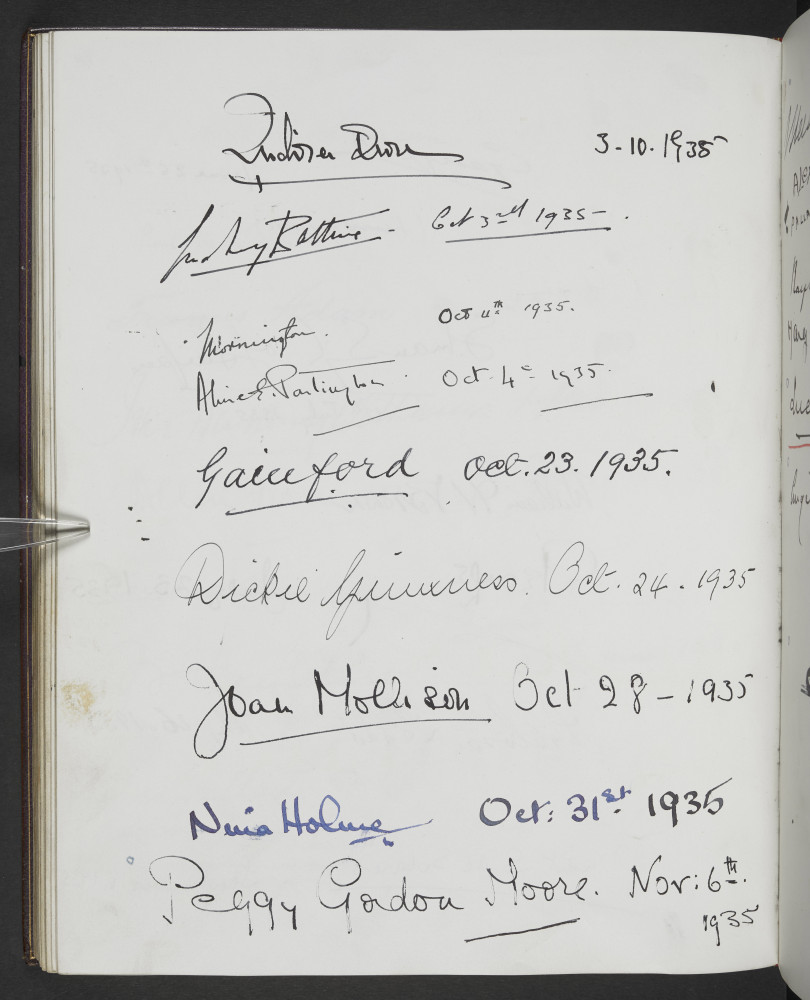 3-10-1935
Oct 3rd 1935-.
Mornington. Oct 4th 1935.
Aline E. Partington. Oct. 4th 1935.
Gainford Oct. 23. 1935.
Dickie Guinness. Oct. 24. 1935
Joan Mollison Oct 28-1935
Nina Holme Oct: 31st 1935
Peggy Gordon Moore. Nov: 6th.
1935